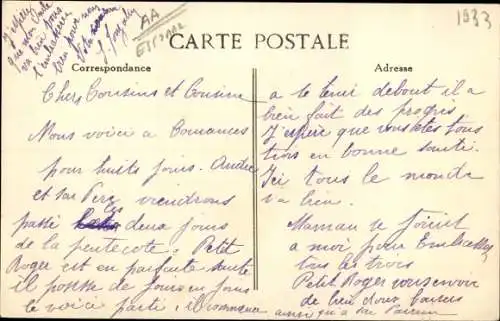 J'espère
que mon oncle
va bien vous
l'embrasserez
bien pour nous
AA
1933
CARTE POSTALE
Correspondance
Adresse
Chers Cousins et Cousine
Nous voici a
pour huits jours. André
et sa viendrons
passé les deux jours
de la pentecote. Petit
Roger est en parfaite sante
il pousse de jours en jours
le voici parti, il commence
a se tenir debout il a
bien fait des progres
J'espere que vous êtes tous
trois en bonne santé.
Ici tous le monde
va bien.
Maman se joint
a moi pour Embrasser
tous les trois
Petit Roger vous envoie
de bien doux baisers
ainsi qu'a sa